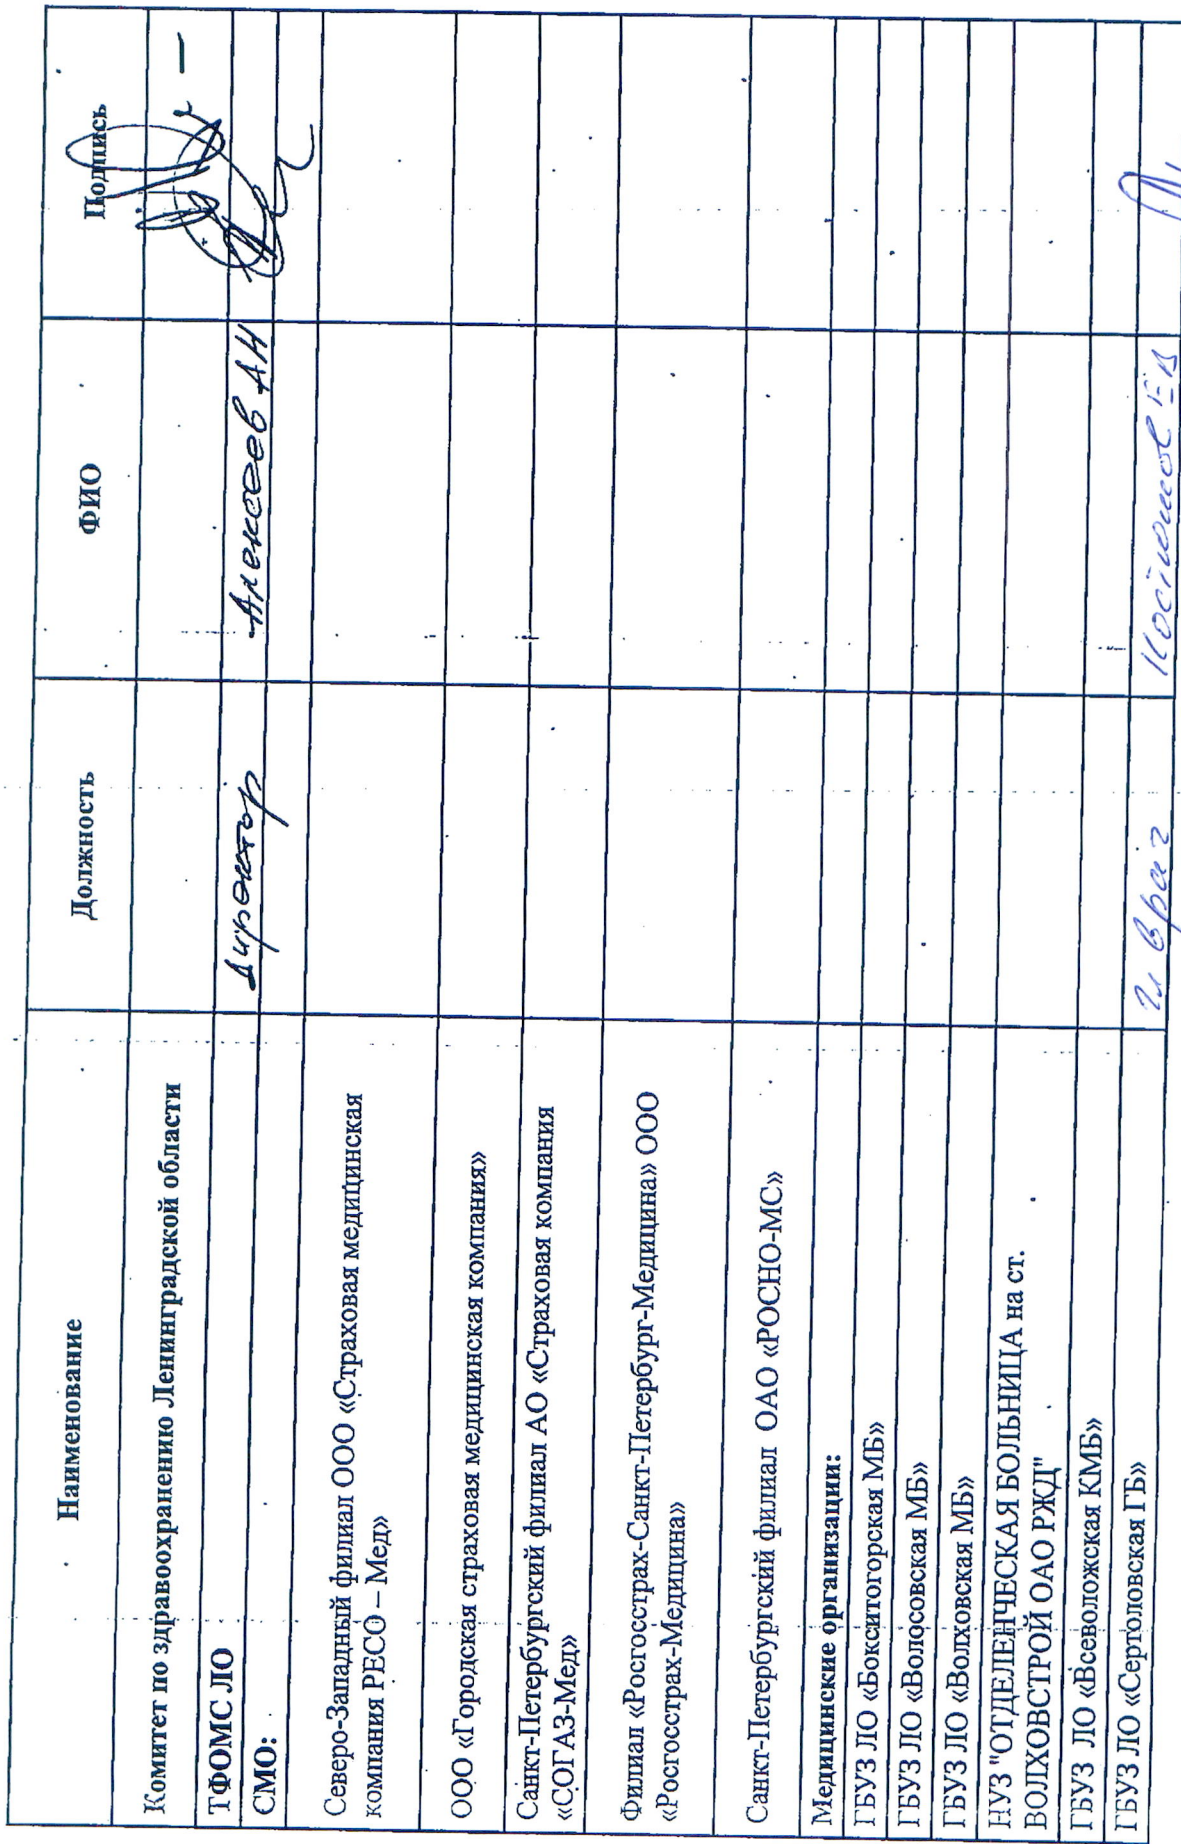 Наименование Должность ФИО Подпись
Комитет по здравоохранению Ленинградской области
ТФОМС ЛО директор Алексеев АН
СМО:
Северо-Западный филиал ООО «Страховая медицинская
компания РЕСО – Мед»
ООО «Городская страховая медицинская компания»
Санкт-Петербургский филиал АО «Страховая компания
«СОГАЗ-Мед»
Филиал «Росгосстрах-Санкт-Петербург-Медицина» ООО
«Росгосстрах-Медицина»
Санкт-Петербургский филиал ОАО «РОСНО-МС»
Медицинские организации:
ГБУЗ ЛО «Бокситогорская МБ»
ГБУЗ ЛО «Волосовская МБ»
ГБУЗ ЛО «Волховская МБ»
НУЗ "ОТДЕЛЕНЧЕСКАЯ БОЛЬНИЦА на ст.
ВОЛХОВСТРОЙ ОАО РЖД"
ГБУЗ ЛО «Всеволожская КМБ»
ГБУЗ ЛО «Сертоловская ГБ» Гл врач